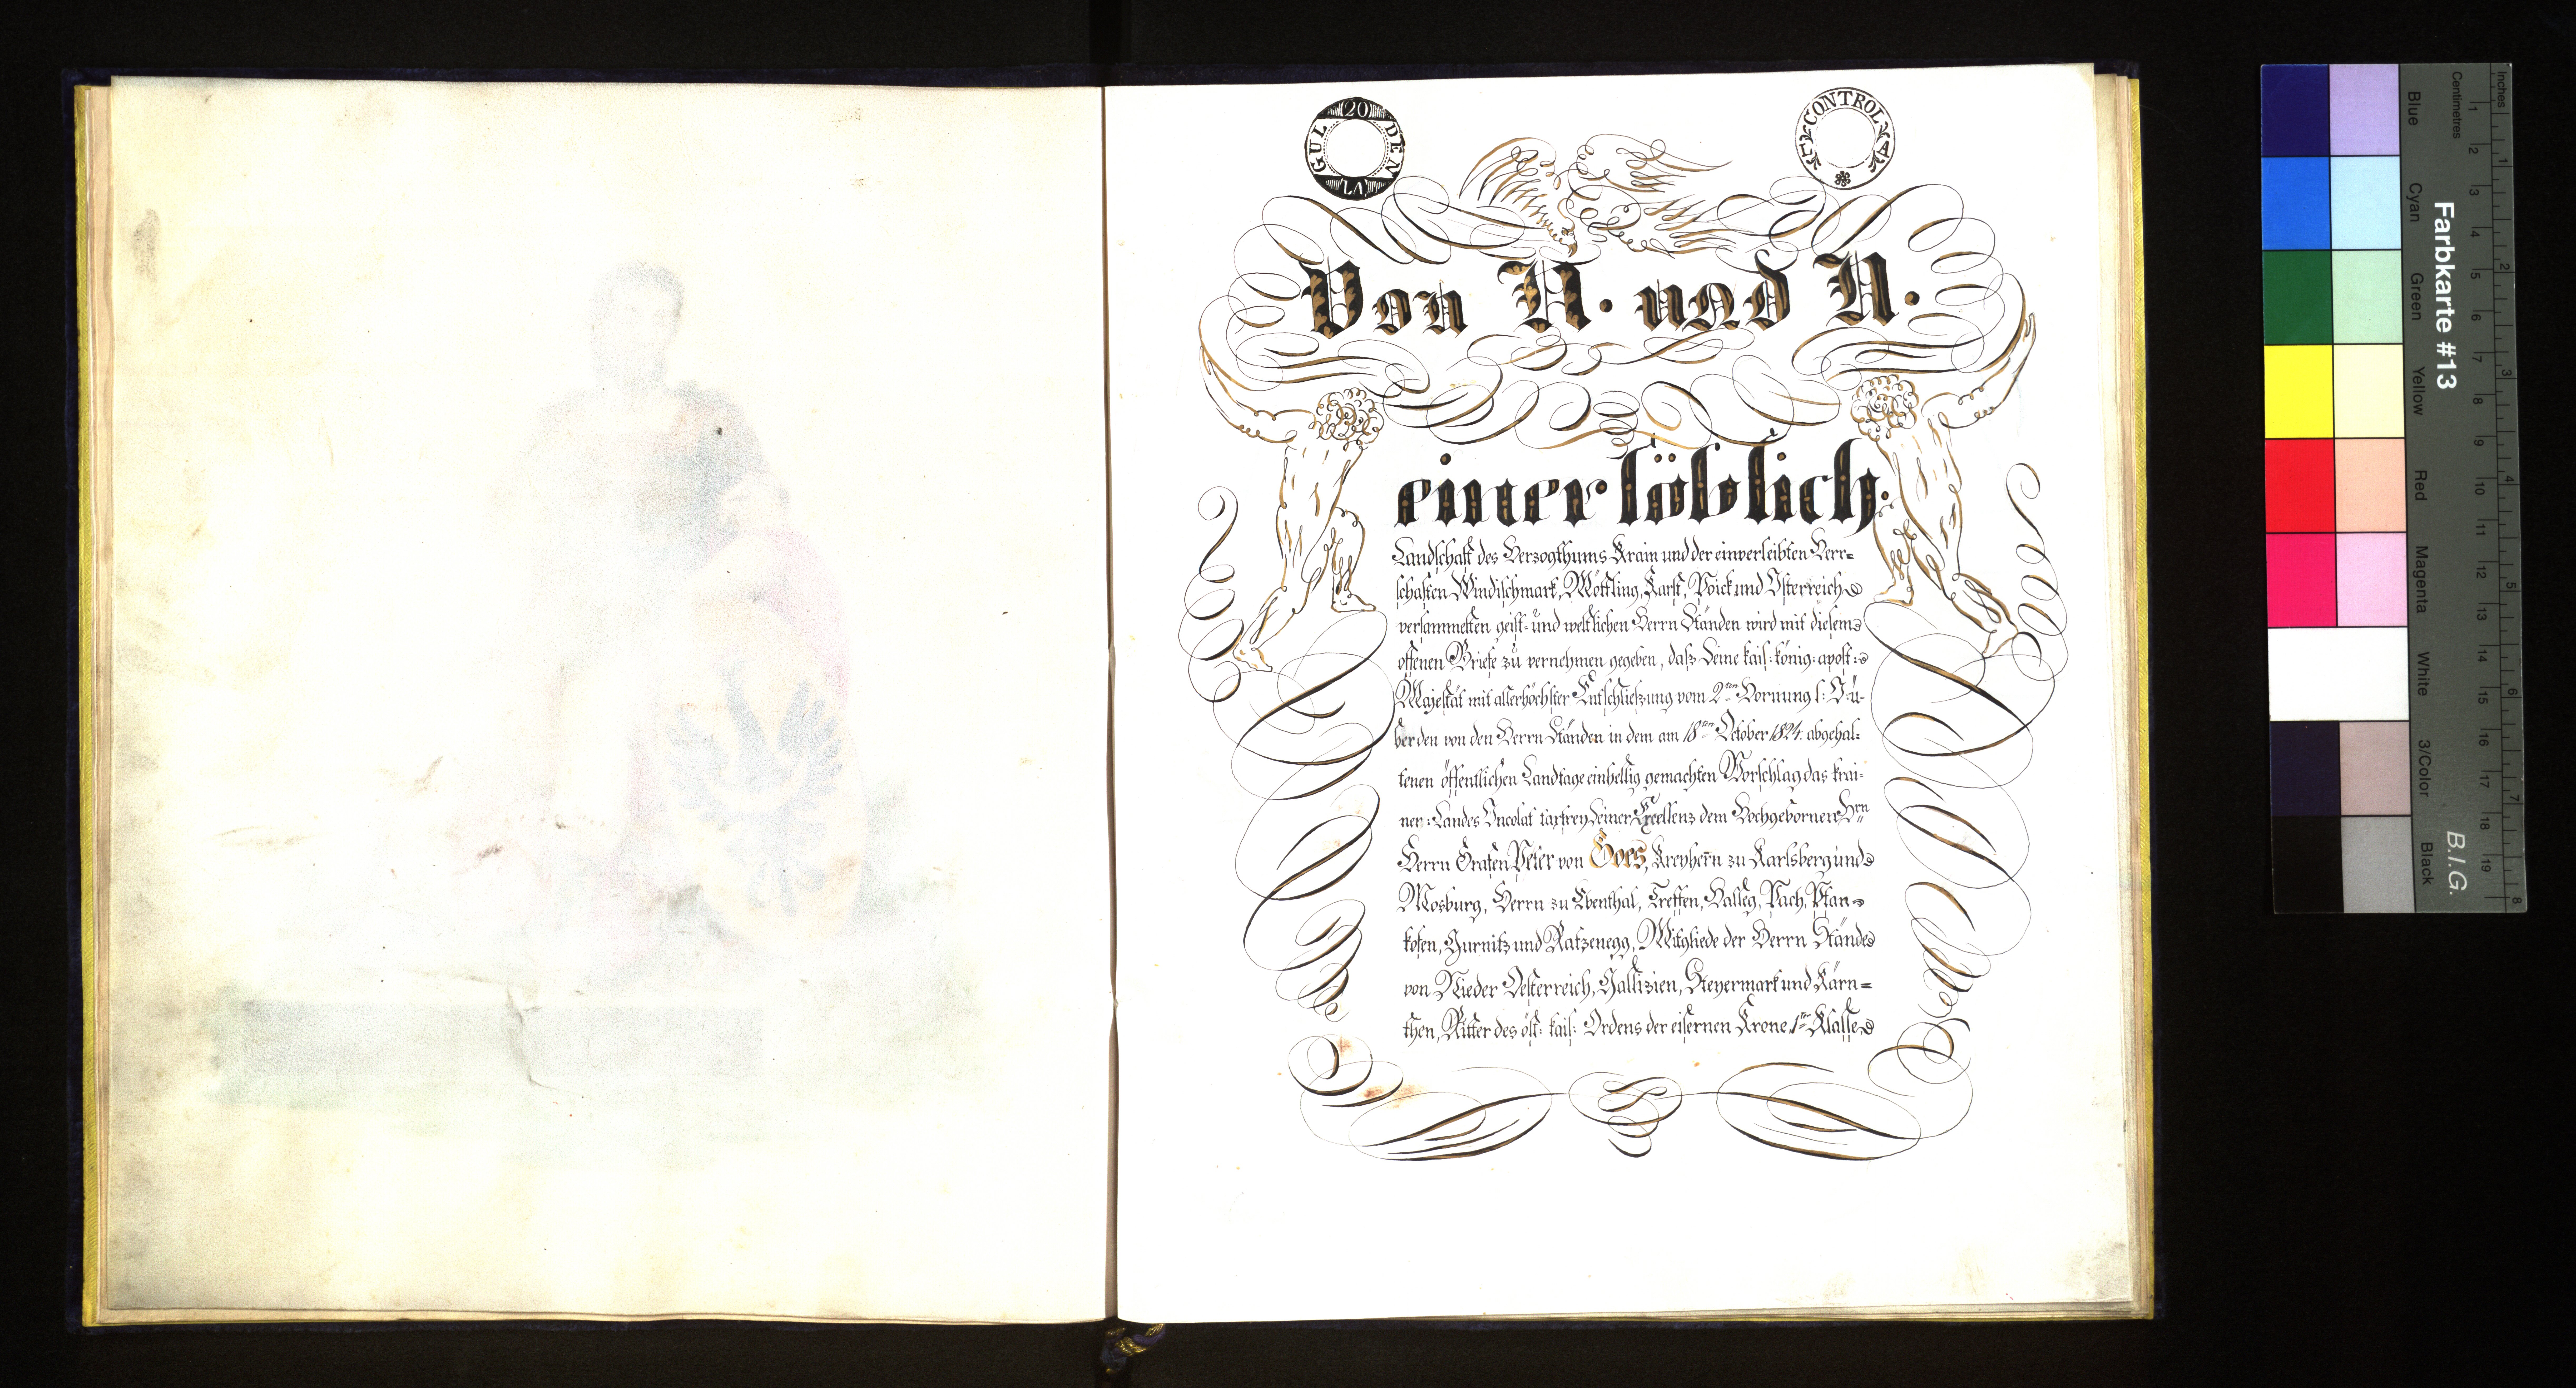 20 GULDEN
CONTROLL
Von N. und N.
einer löblich:
Landschaft des Herzogthums Krain und der einverleibten Herr=
schaften Windischmark, Möttling, Karst, Poick und Isterreich
versammelten geist- und weltlichen Herrn Ständen wird mit diesem
offenen Briefe zu vernehmen gegeben, daß Seine kais: könig: apost:
Majestät mit allerhöchster Entschließung vom 2ten Hornung l: J: ü-
ber den von den Herrn Ständen in dem am 18ten October 1824. abgehal-
tenen öffentlichen Landtage einhellig gemachten Vorschlag das krai-
ner: Landes Incolat taxfrey Seiner Excellenz dem Hochgebornen Hrn
Herrn Grafen Peter von Goes, Freyherrn zu Karlsberg und
Mosburg, Herrn zu Ebenthal, Treffen, Halleg, Pach, Pfan-
kofen, Gurnitz und Ratzenegg, Mitgliede der Herrn Stände
von Nieder Oesterreich, Gallizien, Steyermark und Kärn=
then, Ritter des öst: kais: Ordens der eisernen Krone 1ter Klasse
Farbkarte #13
B.I.G.
Inches
Centimetres
1 2 3 4 5 6 7 8 9 10 11 12 13 14 15 16 17 18 19
1 2 3 4 5 6 7 8
Blue
Cyan
Green
Yellow
Red
Magenta
White
3/Color
Black